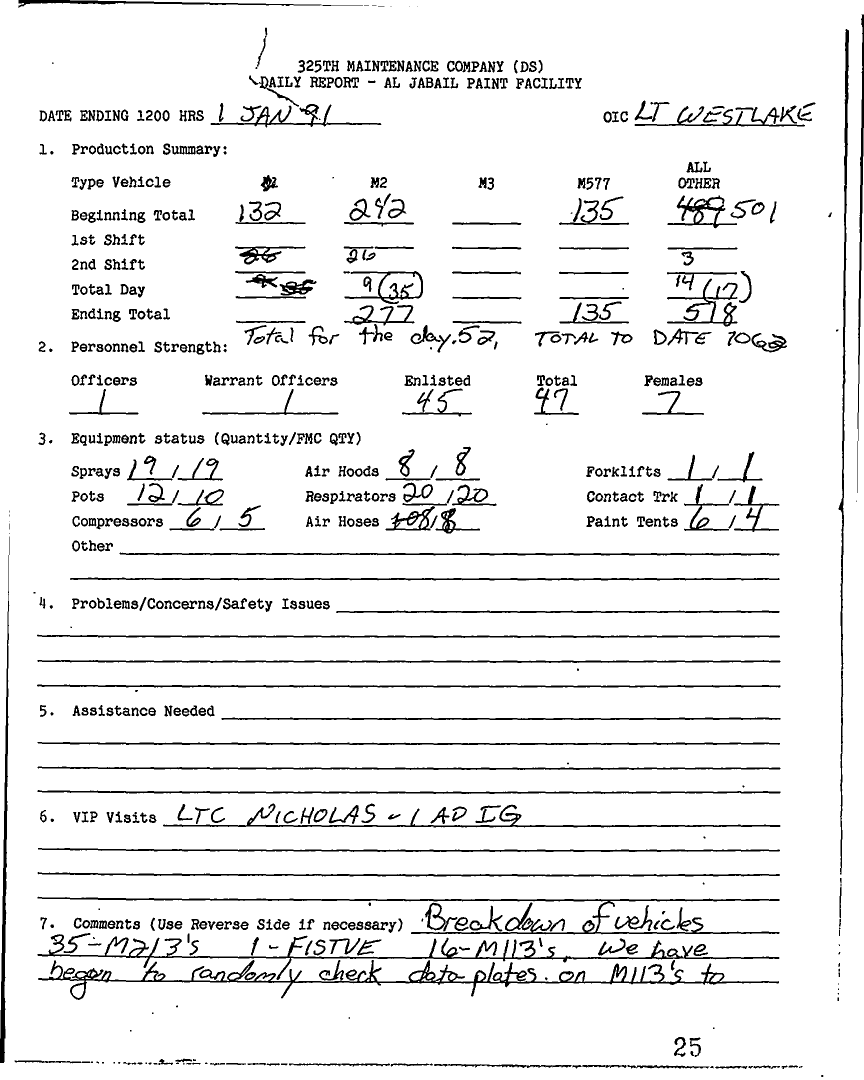 325TH MAINTENANCE COMPANY (DS)
DAILY REPORT - AL JABAIL PAINT FACILITY
DATE ENDING 1200 HRS 1 JAN 91 OIC LT WESTLAKE
1. Production Summary:
ALL
Type Vehicle M2 M3 M577 OTHER
Beginning Total 132 242 135 489 501
1st Shift
2nd Shift 26 26 3
Total Day 9 (35) 14 (17)
Ending Total 277 135 518
Total for the day. 52, TOTAL TO DATE 1062
2. Personnel Strength:
Officers Warrant Officers Enlisted Total Females
1 1 45 47 7
3. Equipment status (Quantity/FMC QTY)
Sprays 19 / 19 Air Hoods 8 / 8 Forklifts 1 / 1
Pots 12 / 10 Respirators 20 / 20 Contact Trk 1 / 1
Compressors 6 / 5 Air Hoses 8 / 8 Paint Tents 6 / 4
Other
4. Problems/Concerns/Safety Issues
5. Assistance Needed
6. VIP Visits LTC NICHOLAS - 1 AD IG
7. Comments (Use Reverse Side if necessary) Breakdown of vehicles
35-M2/3's 1-FISTVE 16-M113's. We have
began to randomly check data plates on M113's to
25